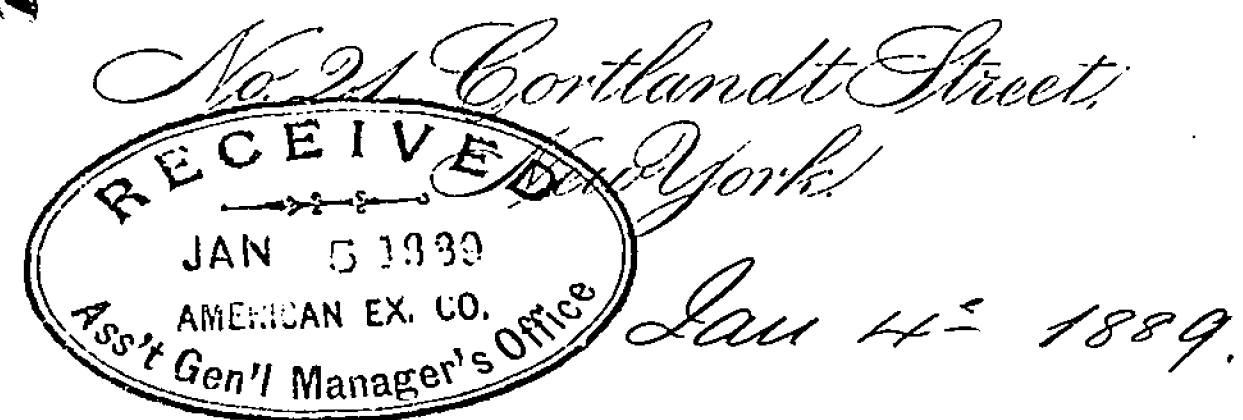 No. 21 Cortlandt Street,
New York,
RECEIVED
JAN 5 1889
AMERICAN EX. CO.
Ass't Gen'l Manager's Office
Jan 4th 1889.